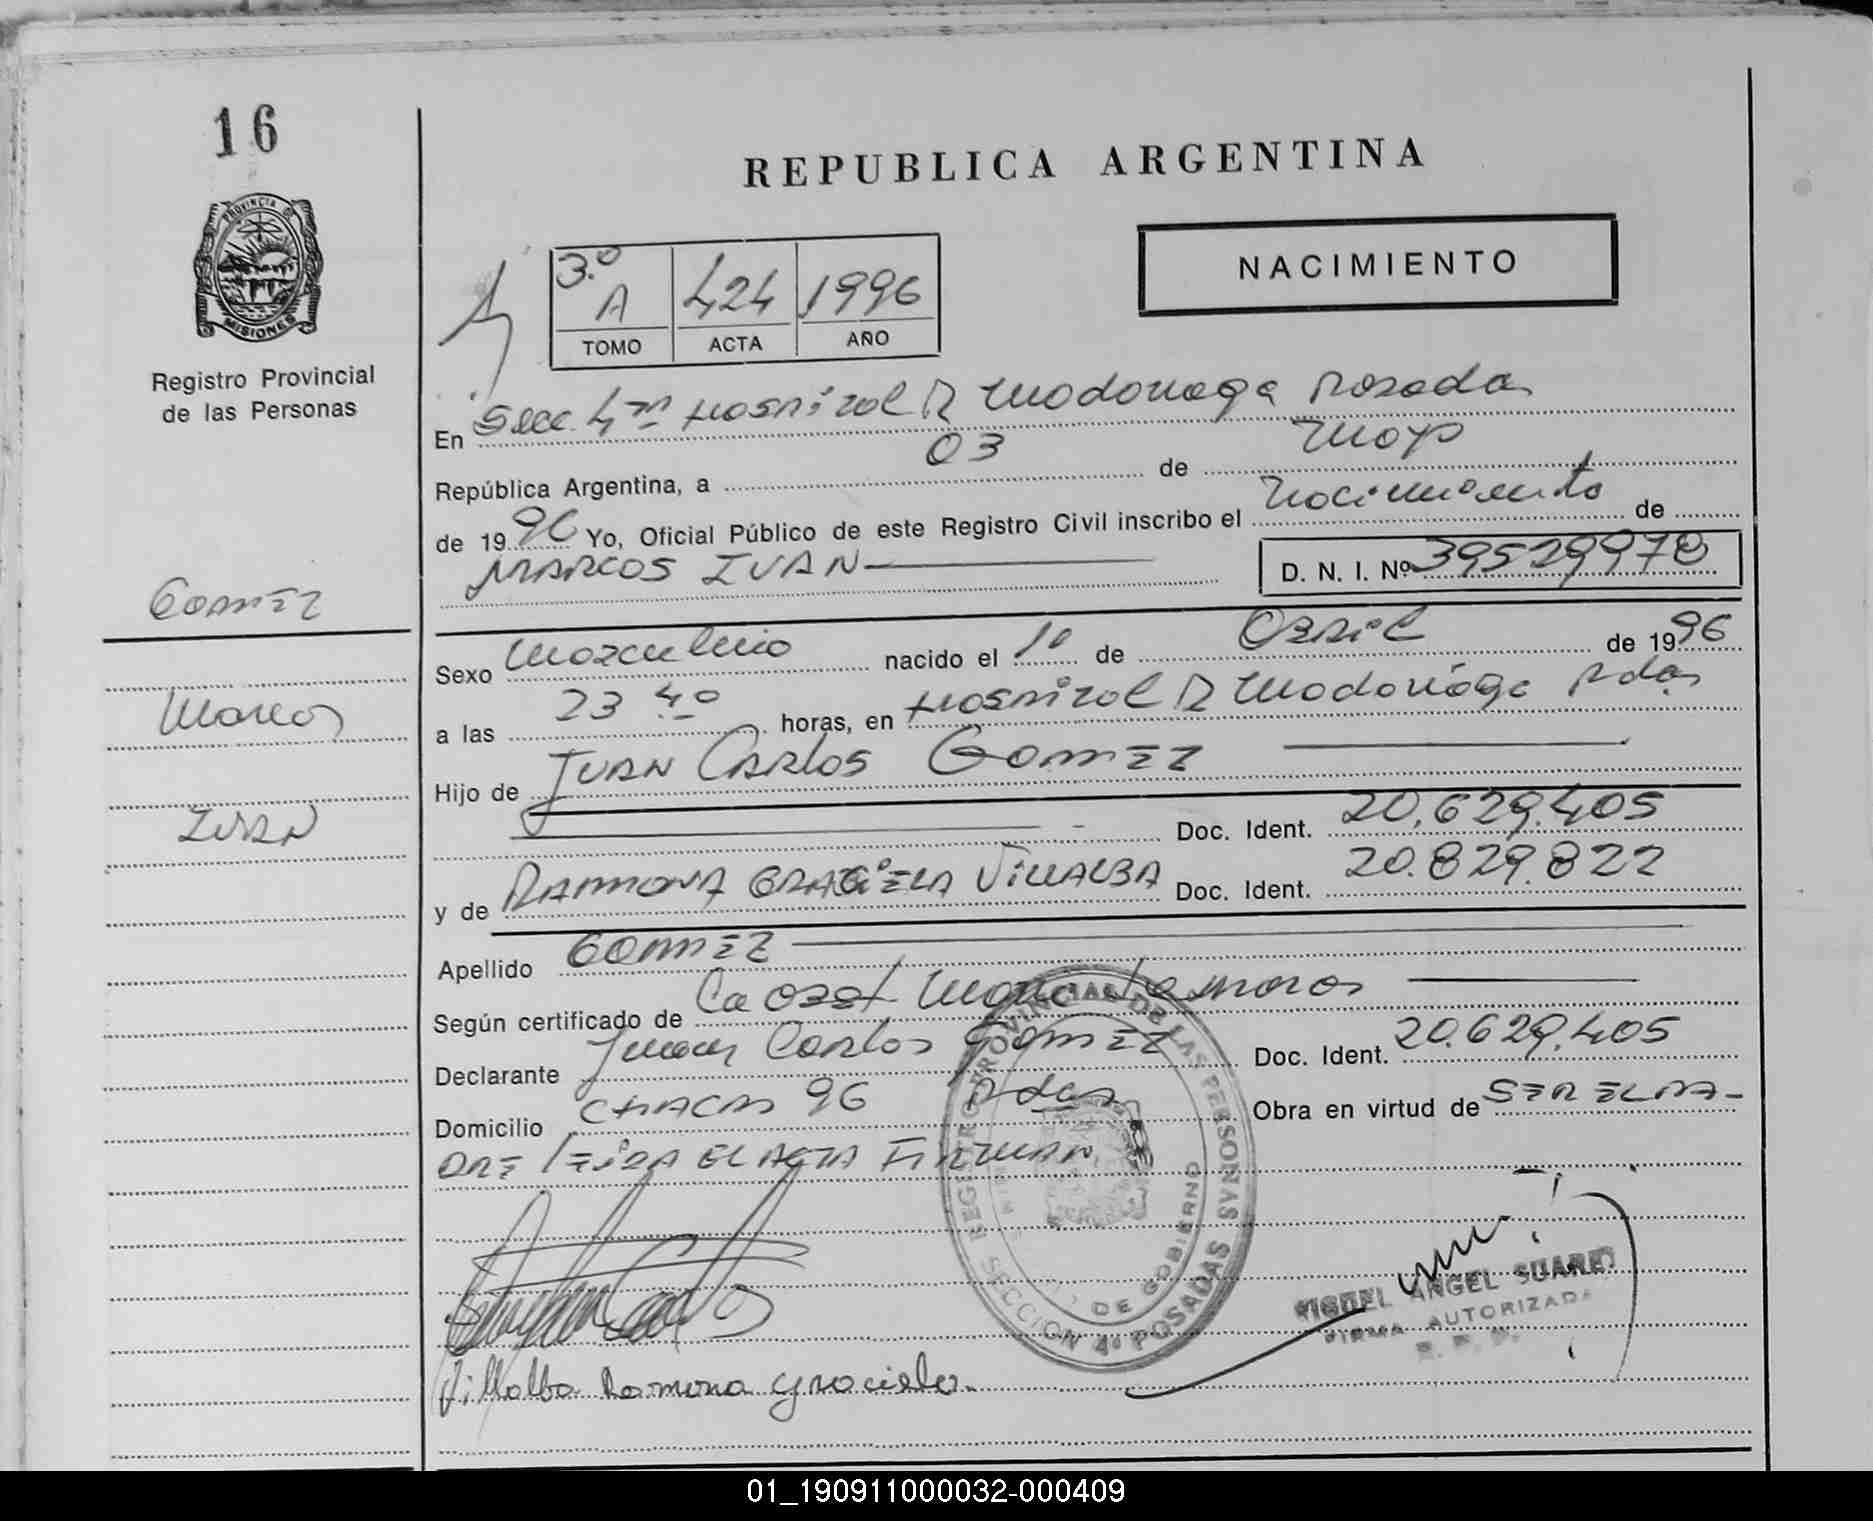 16
PROVINCIA DE
MISIONES
Registro Provincial
de las Personas
REPUBLICA ARGENTINA
NACIMIENTO
3.º A 424 1996
TOMO ACTA AÑO
En Secc. 4ta Hospital R Madariaga Posadas
República Argentina, a 03 de Mayo
de 1996 Yo, Oficial Público de este Registro Civil inscribo el Nacimiento de
MARCOS IVAN D. N. I. Nº 39529978
GOMEZ
Marcos
IVAN
Sexo Masculino nacido el 1º de Abril de 1996
a las 23 40 horas, en Hospital R Madariaga Pdas
Hijo de JUAN CARLOS GOMEZ
Doc. Ident. 20.629.405
y de RAMONA GRACIELA VILLALBA Doc. Ident. 20.829.822
Apellido GOMEZ
Según certificado de La Obst
Declarante Juan Carlos GOMEZ Doc. Ident. 20.629.405
Domicilio CHACAS 96 Pdas Obra en virtud de SER EL PA-
DRE leida EL ACTA FIRMAN
REGISTRO PROVINCIAL DE LAS PERSONAS
DE GOBIERNO
SECCION 4º POSADAS
MIGUEL ANGEL SUAREZ
FIRMA AUTORIZADA
Villalba Ramona Graciela.
01_190911000032-000409